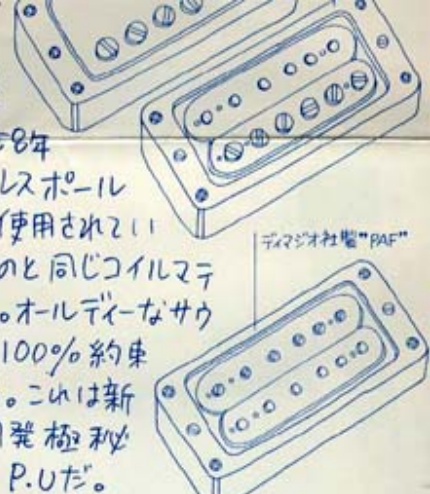 58年
レスポール
使用されてい
のと同じコイルマテ
。オールディーなサウ
100%約束
。これは新
開発極秘
P.Uだ。
ディマジオ社製"PAF"